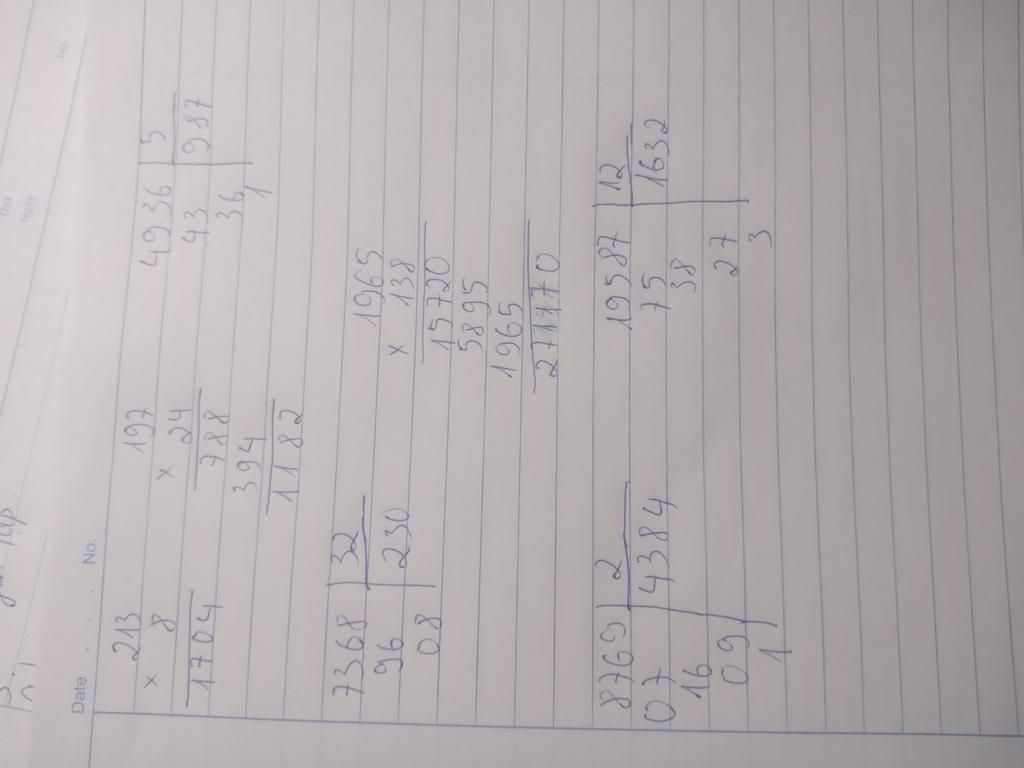 Date No.
213
× 8
1704
197
× 24
788
394
1182
4936 5
43 987
36
1
7368 32
96 230
08
1965
× 138
15720
5895
1965
271170
8769 2
07 4384
16
09
1
19587 12
75 1632
38
27
3